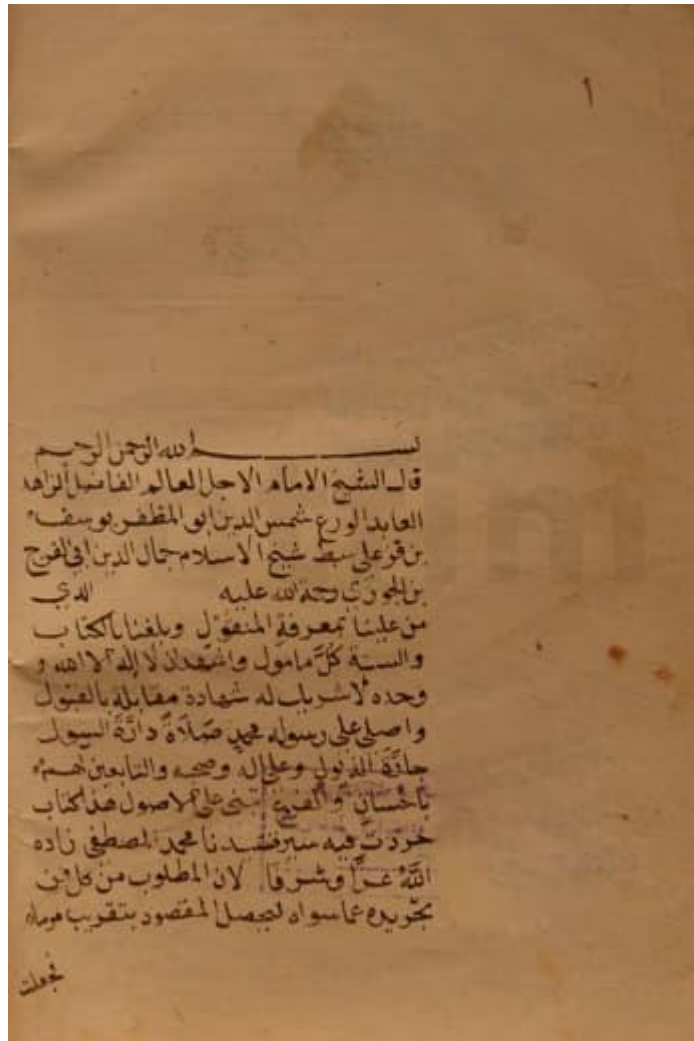 أ
بسم الله الرحمن الرحيم
قال الشيخ الامام الاجل العالم الفاضل الزاهد
العابد الورع شمس الدين ابو المظفر يوسف
بن قزعلى سبط شيخ الاسلام جمال الدين ابي الفرج
بن الجوزي رحمة الله عليه الذي
من علينا بمعرفة المنقول وبلغنا بالكتاب
والسنة كلَّ مامول واشهد ان لا إله الا الله و
وحده لا شريك له شهادة مقابلة بالقبول
واصلى على رسوله محمدٍ صَلَاةً دارَّةَ السيول
جارَّةَ الذيول وعلى اله وصحبه والتابعين لهم
باحسان والفروع تبنى على الاصول هذا كتاب
جردتُ فيه سير سيدنا محمد المصطفى زاده
اللَّهُ عزًّا وشرفا لان المطلوب من كل فن
تجريده عما سواه ليحصل المقصود بتقريب
فجعلت